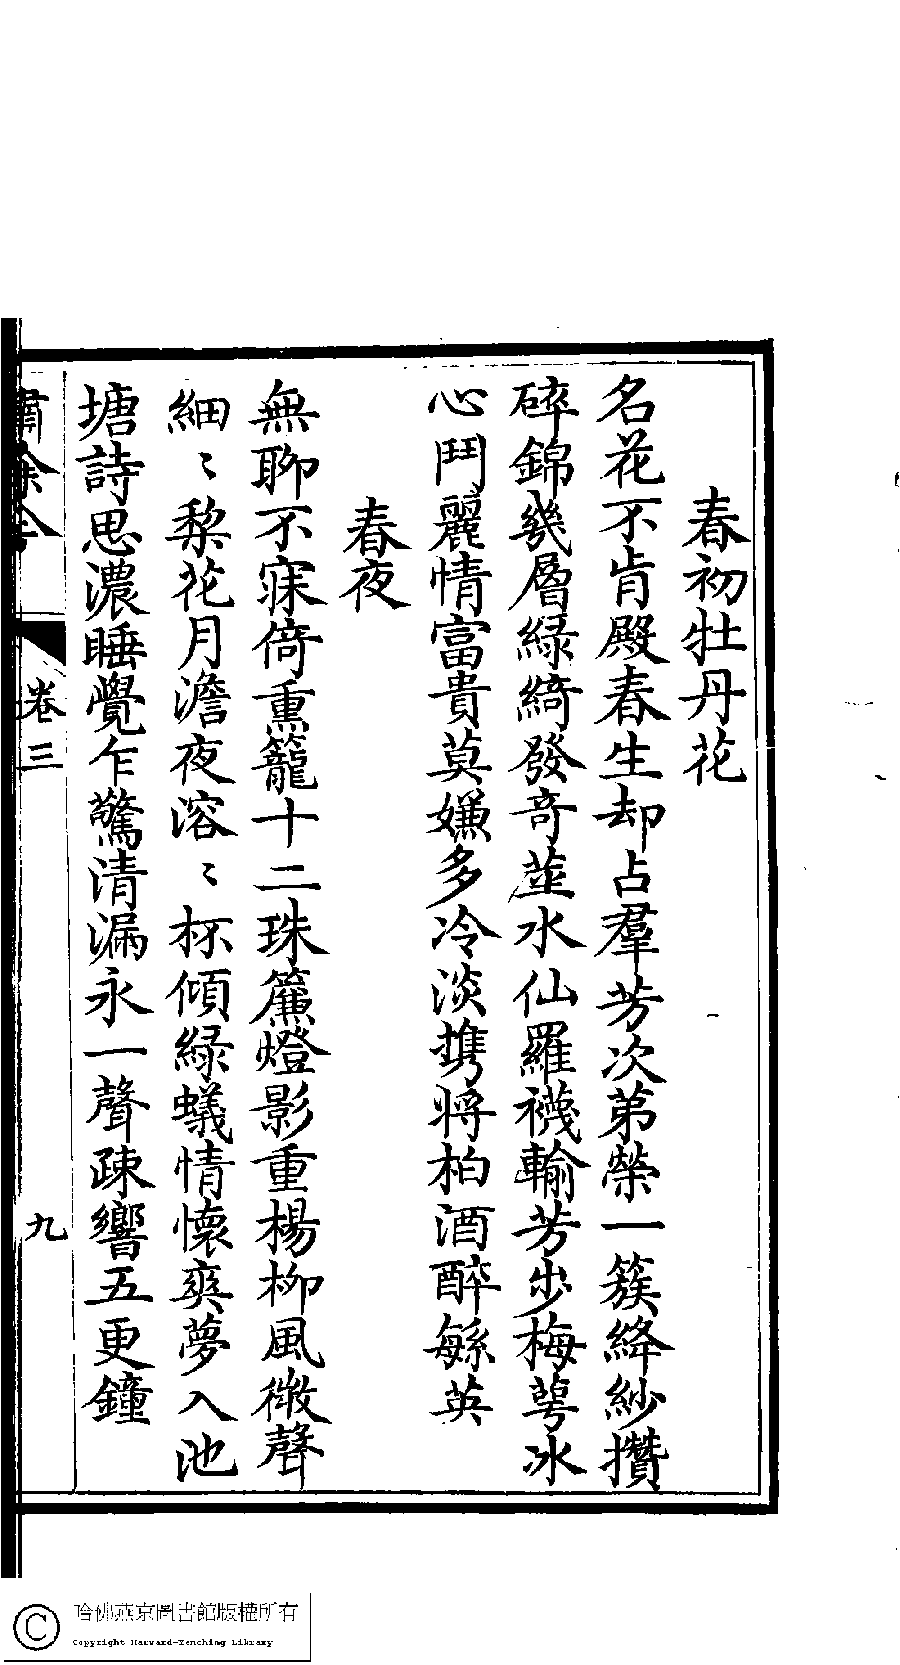 春初牡丹花
名花不肯殿春生却占羣芳次第榮一簇絳紗攢
碎錦幾層緑綺發奇葩水仙羅襪輸芳步梅萼冰
心鬥麗情富貴莫嫌多冷淡攜將柏酒醉繇英
春夜
無聊不寐倚熏籠十二珠簾燈影重楊柳風微聲
細〻棃花月澹夜溶〻杯傾緑蟻情懷爽夢入池
塘詩思濃睡覺乍驚清漏永一聲疎響五更鐘
卷三
九
哈佛燕京圖書館版權所有
Copyright Harvard-Yenching Library